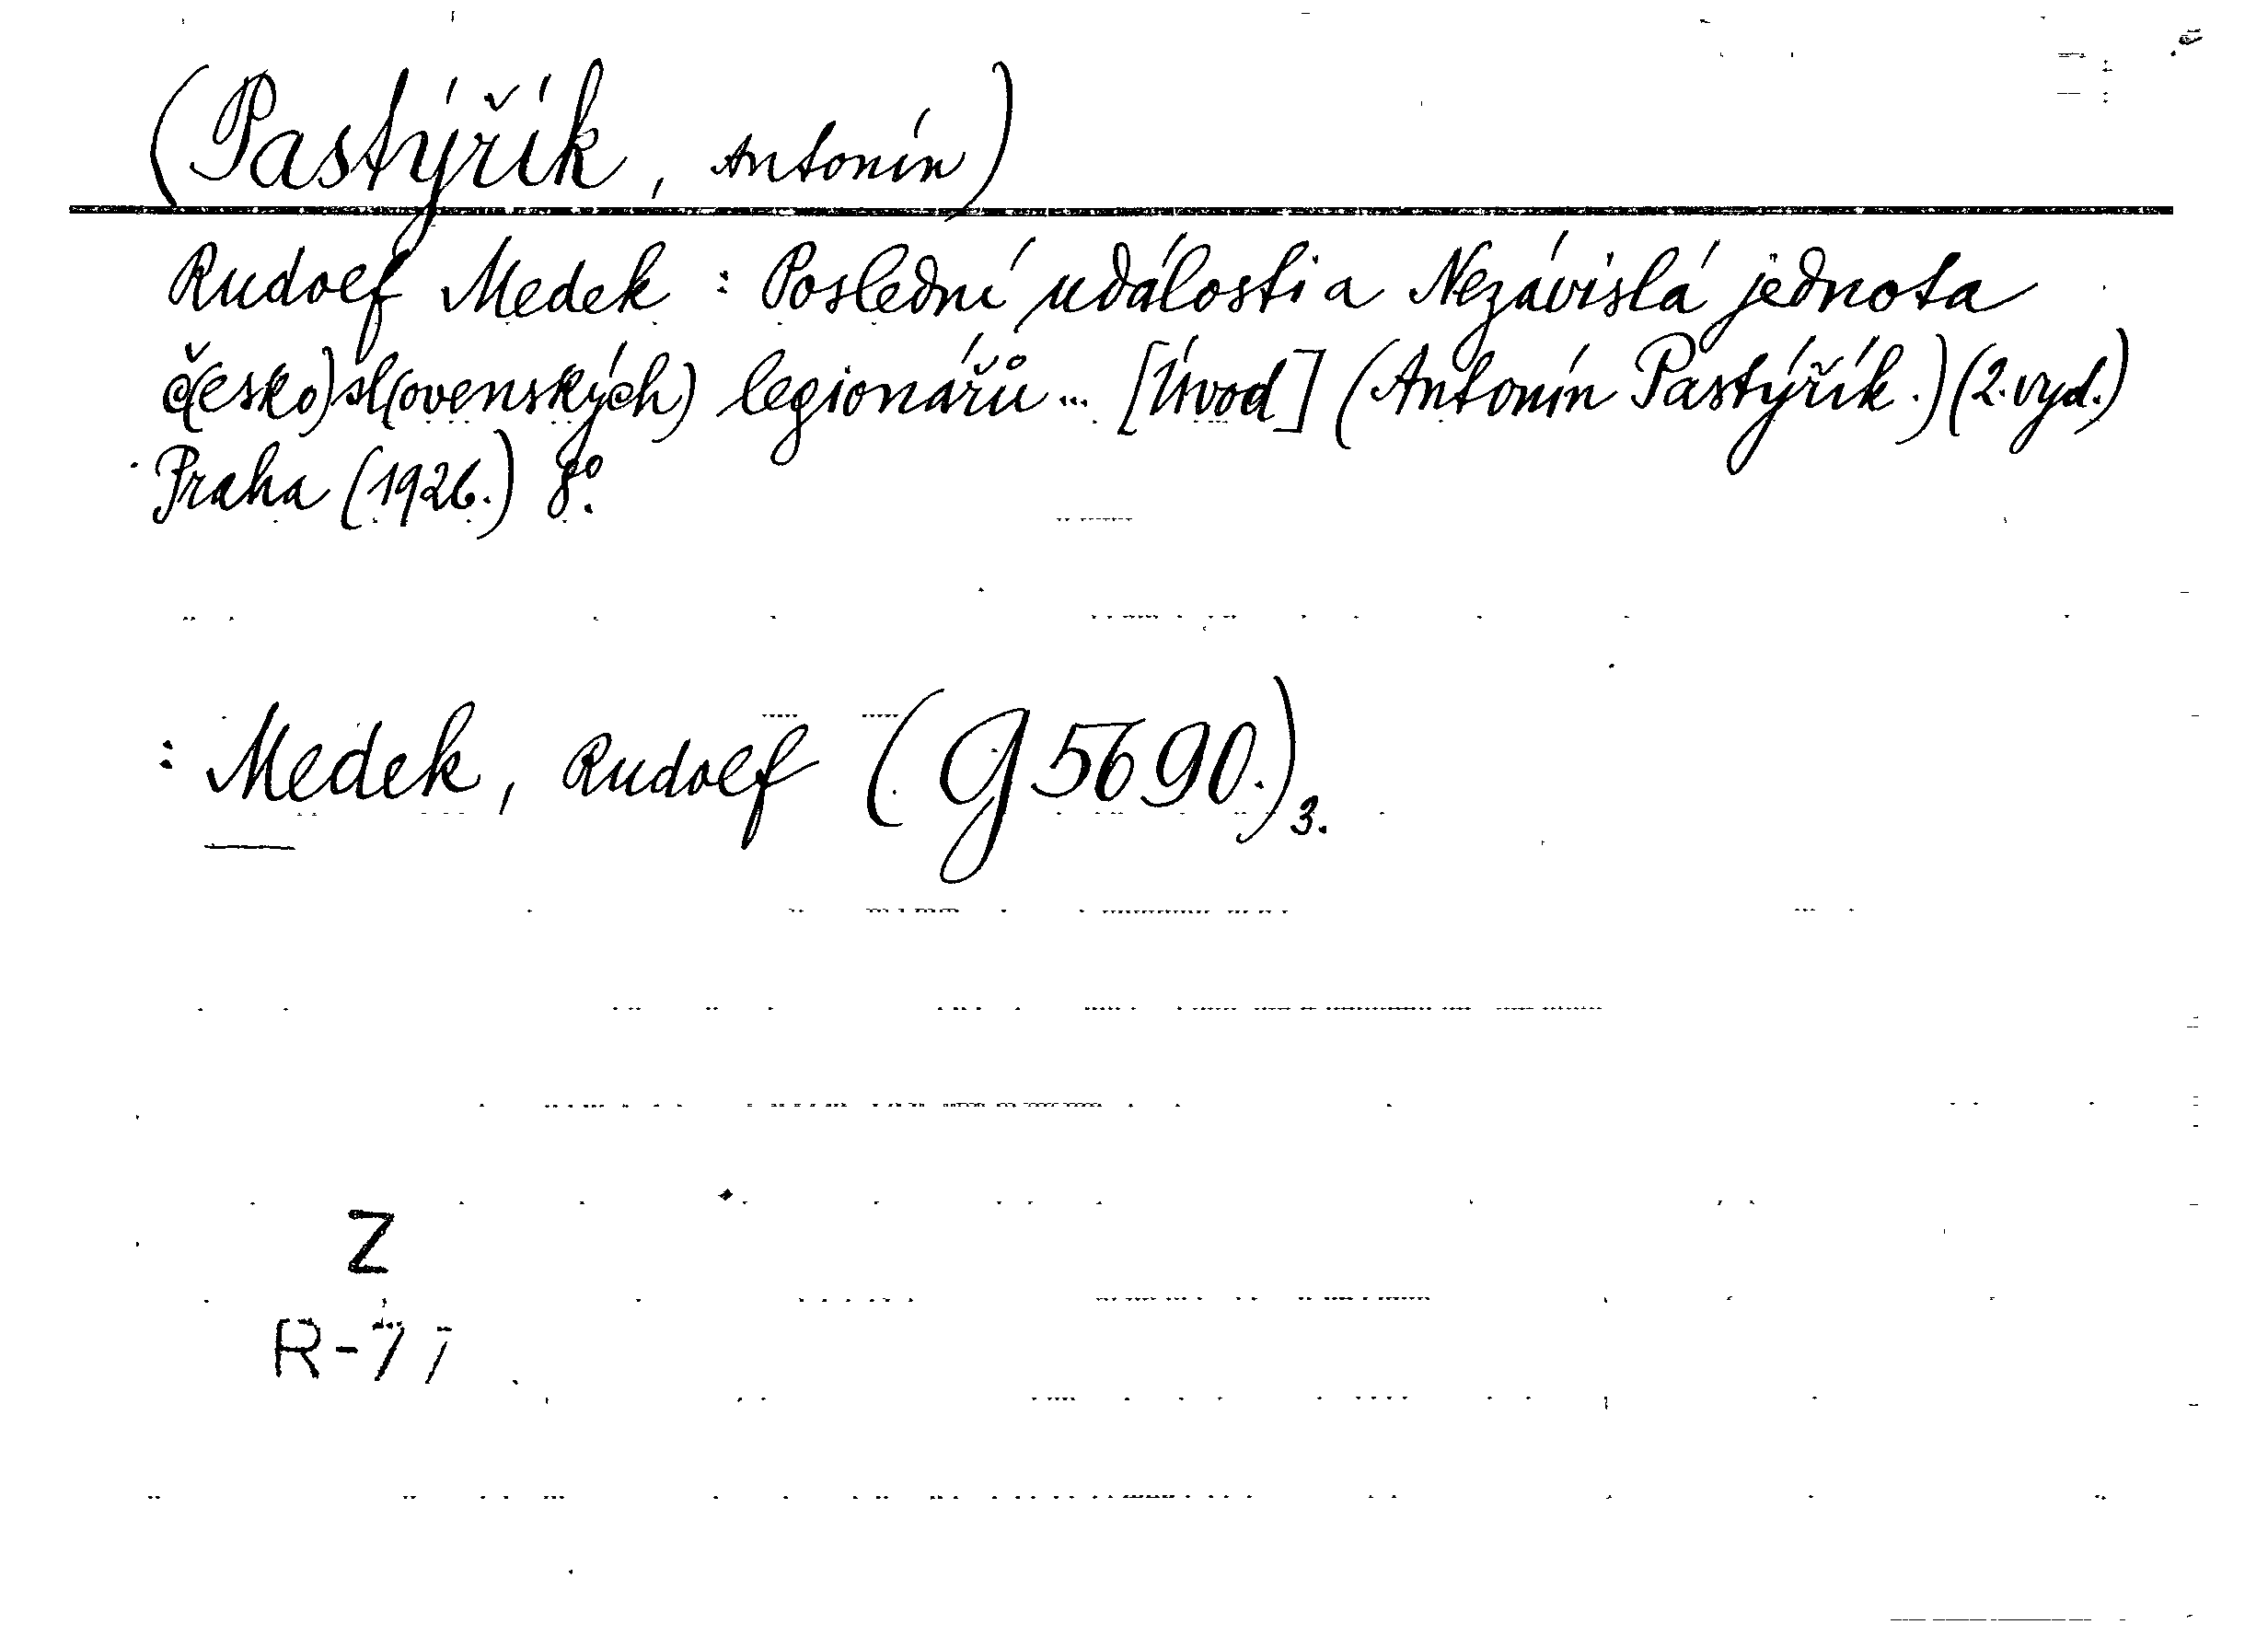 (Pastýřík, Antonín)
Rudolf Medek : Poslední události a Nezávislá jednota
č(esko)sl(ovenských) legionářů... [Úvod] (Antonín Pastýřík.) (2. vyd.)
Praha (1926.) 8°.
: Medek, Rudolf (G 5690.)3.
Z
R-77